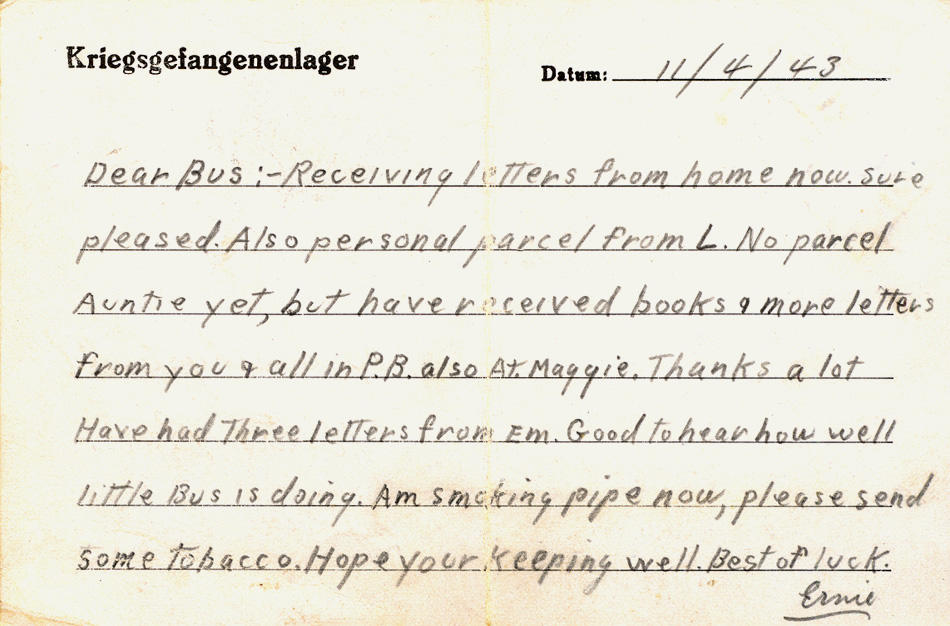 Kriegsgefangenenlager
Datum: 11/4/43
Dear Bus:- Receiving letters from home now. Sure
pleased. Also personal parcel from L. No parcel
Auntie yet, but have received books & more letters
from you & all in P.B. also At. Maggie. Thanks a lot
Have had Three letters from Em. Good to hear how well
little Bus is doing. Am smoking pipe now, please send
some tobacco. Hope your keeping well. Best of luck.
Ernie